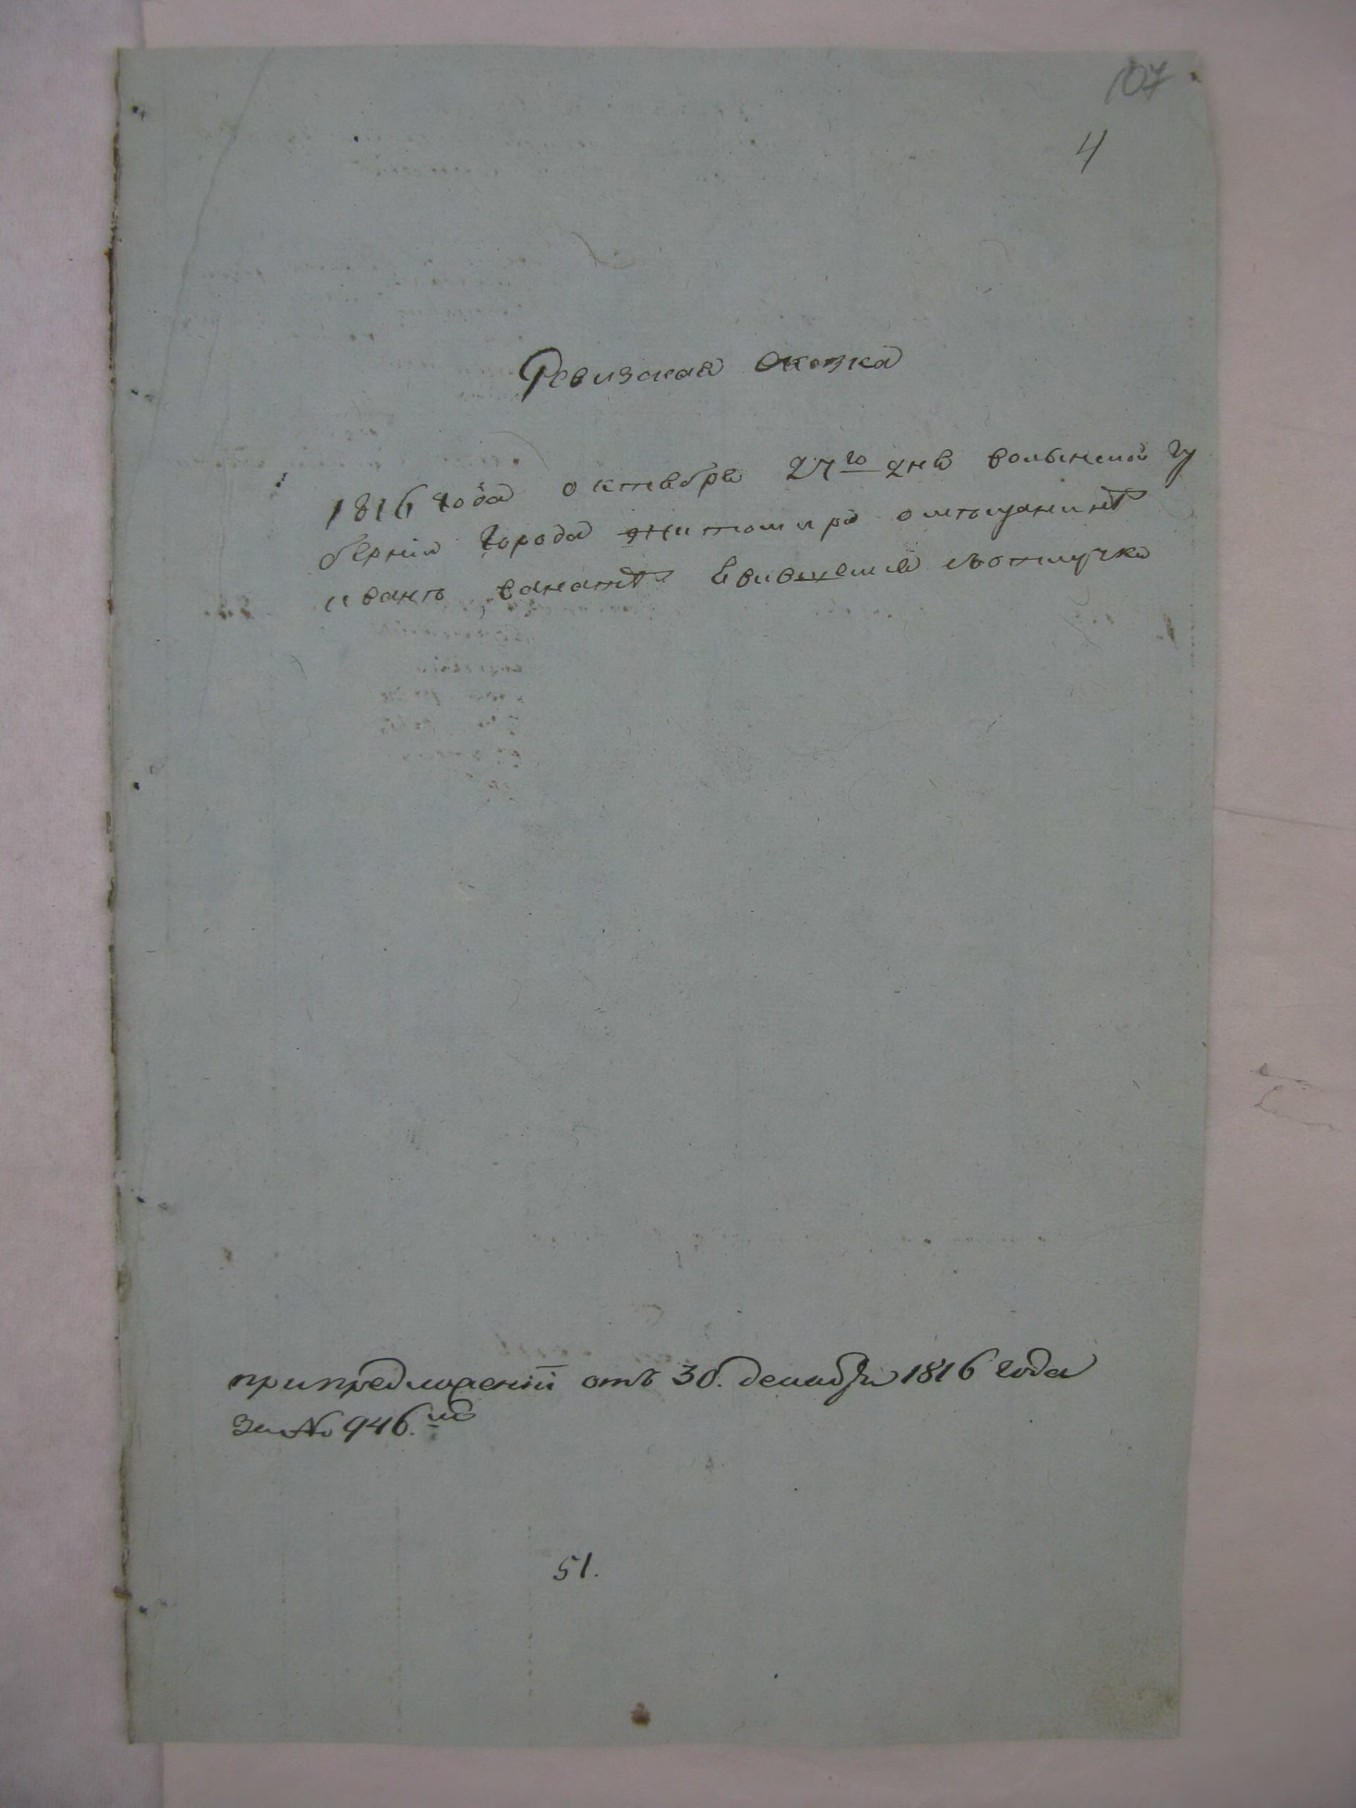 107
4
Ревизская Сказка
1816 года октября 27го дня волынской гу
берніи города житомира о мѣщанинѣ
иванѣ
при предложеніи отъ 30. декабря 1816 года
за № 946.мъ
51.